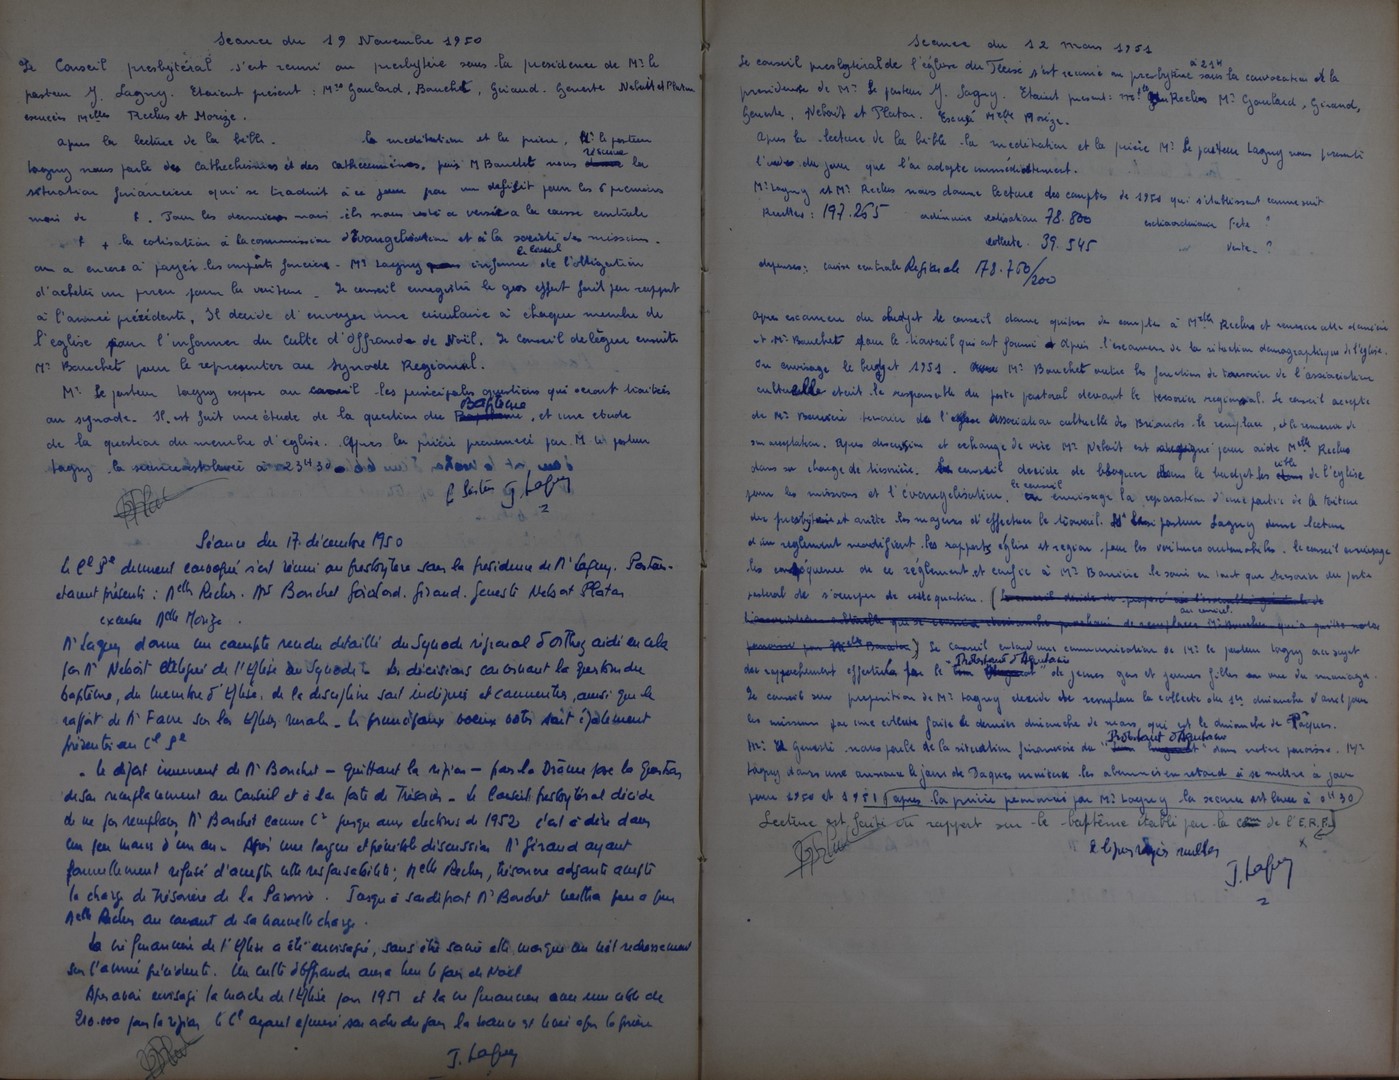 Séance du 19 Novembre 1950
Le Conseil presbytéral s'est reuni au presbytère sous la presidence de Mr le
pasteur J. Lagny. Etaient présent : Mrs Goulard, Bouchet, Giraud, Geneste Neboit et Platan
excusées Melles Reclus et Morize.
Après la lecture de la bible. la meditation et la prière, Mr le pasteur
Lagny nous parle des cathechismes et des cathecumènes, puis M Bouchet nous résume la
situation financière qui se traduit à ce jour par un deficit pour les 6 premiers
mois de f. Pour les derniers mois ils nous reste a verser a la caisse centrale
f + la cotisation à la commission d'Evangelisation et à la société des missions.
on a encore à payer les impôts fonciers. Mr Lagny informe le conseil de l'obligation
d'acheter un pneu pour la voiture. Le conseil enregistre le gros effort fait par rapport
à l'année précédente, Il decide d'envoyer une circulaire à chaque membre de
l'eglise pour l'informer du culte d'Offrande de Noël. Le Conseil delègue ensuite
Mr Bouchet pour le representer au Synode Regional.
Mr le pasteur Lagny expose au conseil les principales questions qui seront traitées
au synode. Il est fait une étude de la question du Baptême, et une etude
de la question du membre d'eglise. Après la prière prononcé par M. le pasteur
Lagny la séance est levée à 23H30
J. Lagny
Séance du 17 décembre 1950
le Cl Pl dument convoqué s'est réuni au presbytère sous la présidence de Mr Lagny. Pasteur.
étaient présents : Melle Reclus. MM Bouchet Goulard. Giraud. Geneste Neboit Platan
excusée Melle Morize.
Mr Lagny donne un compte rendu détaillé du Synode régional d'Orthez aidé en cela
par Mr Neboit délégué de l'Eglise au Synode. Les décisions concernant la question du
baptême, du membre d'Eglise, de la discipline sont indiquées et commentées, ainsi que le
rapport de Mr Faure sur les Eglises rurales. les principaux voeux votés sont également
présentés au Cl Pl
. le départ imminent de Mr Bouchet – quittant la région – pour la Drôme pose la question
de son remplacement au Conseil et à la poste de Trésorier. le Conseil presbytéral décide
de ne pas remplacer Mr Bouchet comme Cr jusqu'aux elections de 1952 c'est à dire dans
un peu moins d'un an. Après une longue et pénible discussion Mr Giraud ayant
formellement refusé d'accepter cette responsabilité; Melle Reclus, trésorière adjointe accepte
la charge de trésorière de la Paroisse. Jusqu'à son départ Mr Bouchet mettra peu à peu
Melle Reclus au courant de sa nouvelle charge.
La vie financière de l'Eglise a été envisagée, sans être saine elle marque un net redressement
sur l'année précédente. Un culte d'offrande aura lieu le jour de Noël
Après avoir envisagé la marche de l'Eglise pour 1951 et la vie financière avec une cible de
210.000 pour la région le Cl ayant épuisé son ordre du jour la séance est levée après la prière
J. Lagny
Séance du 12 mars 1951
Le conseil presbytéral de l'église du s'est reunie au presbytère à 21H sous la convocation et la
présidence de Mr le pasteur J. Lagny. Etaient present : Melle Reclus Mr Goulard, Giraud,
Geneste, Neboit et Platan. Excusé Melle Morize.
Après la lecture de la bible la meditation et la prière Mr le pasteur Lagny nous
l'ordre du jour que l'on adopte immédiatement.
Mr Lagny et Mr Reclus nous donne lecture des comptes de 1950 qui s'etablissent comme suit
Recettes : 197.265 ordinaire cotisation 78.800 extraordinaire Fete "
collecte. 39.545 Vente. ?
depenses : caisse centrale Régionale 178.750/200
Après examen du budget le conseil donne quitus de comptes à Melle Reclus et
et Mr Bouchet pour le travail qui ont fourni depuis l'examen de la situation demographique de l'église.
On envisage le budget 1951. Mr Bouchet outre les fonctions de tresorier de l'association
cultuelle etait le responsable du poste pastoral devant le tresorier regional. Le conseil accepte
de Mr tresorier de l'association cultuelle des Briands le remplace, et le remercie de
son acceptation. Apres discussion et echange de voix Mr Neboit est pour aide Melle Reclus
dans sa charge de tresorière. Le conseil decide de bloquer dans le budget les cible de l'eglise
pour les missions et l'évangelisation. le conseil envisage la reparation d'une partie de la toiture
du presbytère et arrête les moyens d'effectuer le travail. Mr le pasteur Lagny donne lecture
d'un reglement modifiant les rapports église et region pour les voitures automobiles. le conseil envisage
les conséquence de ce règlement et confie à Mr le soin en tant que tresorier du poste
pastoral de s'occuper de cette question. (
au conseil.
) Le Conseil entend une communication de Mr le pasteur Lagny au sujet
des rapprochement effectués par le "Protestant d'Aquitaine" de jeunes gens et jeunes filles en vue du mariage.
Le conseil sur proposition de Mr Lagny decide de remplacer la collecte du 1er dimanche d'avril pour
les missions par une collecte faite le dernier dimanche de mars, qui est le dimanche de Pâques.
Mr Geneste nous parle de la situation financière du "Protestant d'Aquitaine" dans notre paroisse. Mr
Lagny dans une annonce le jour de Paques invitera les abonnés en retard à se mettre à jour
pour 1950 et 1951 (après la prière prononcé par Mr Lagny la seance est levée à 0H30
Lecture est faite du rapport sur le baptême établi par la com de l'E.R.F.)
J. Lagny